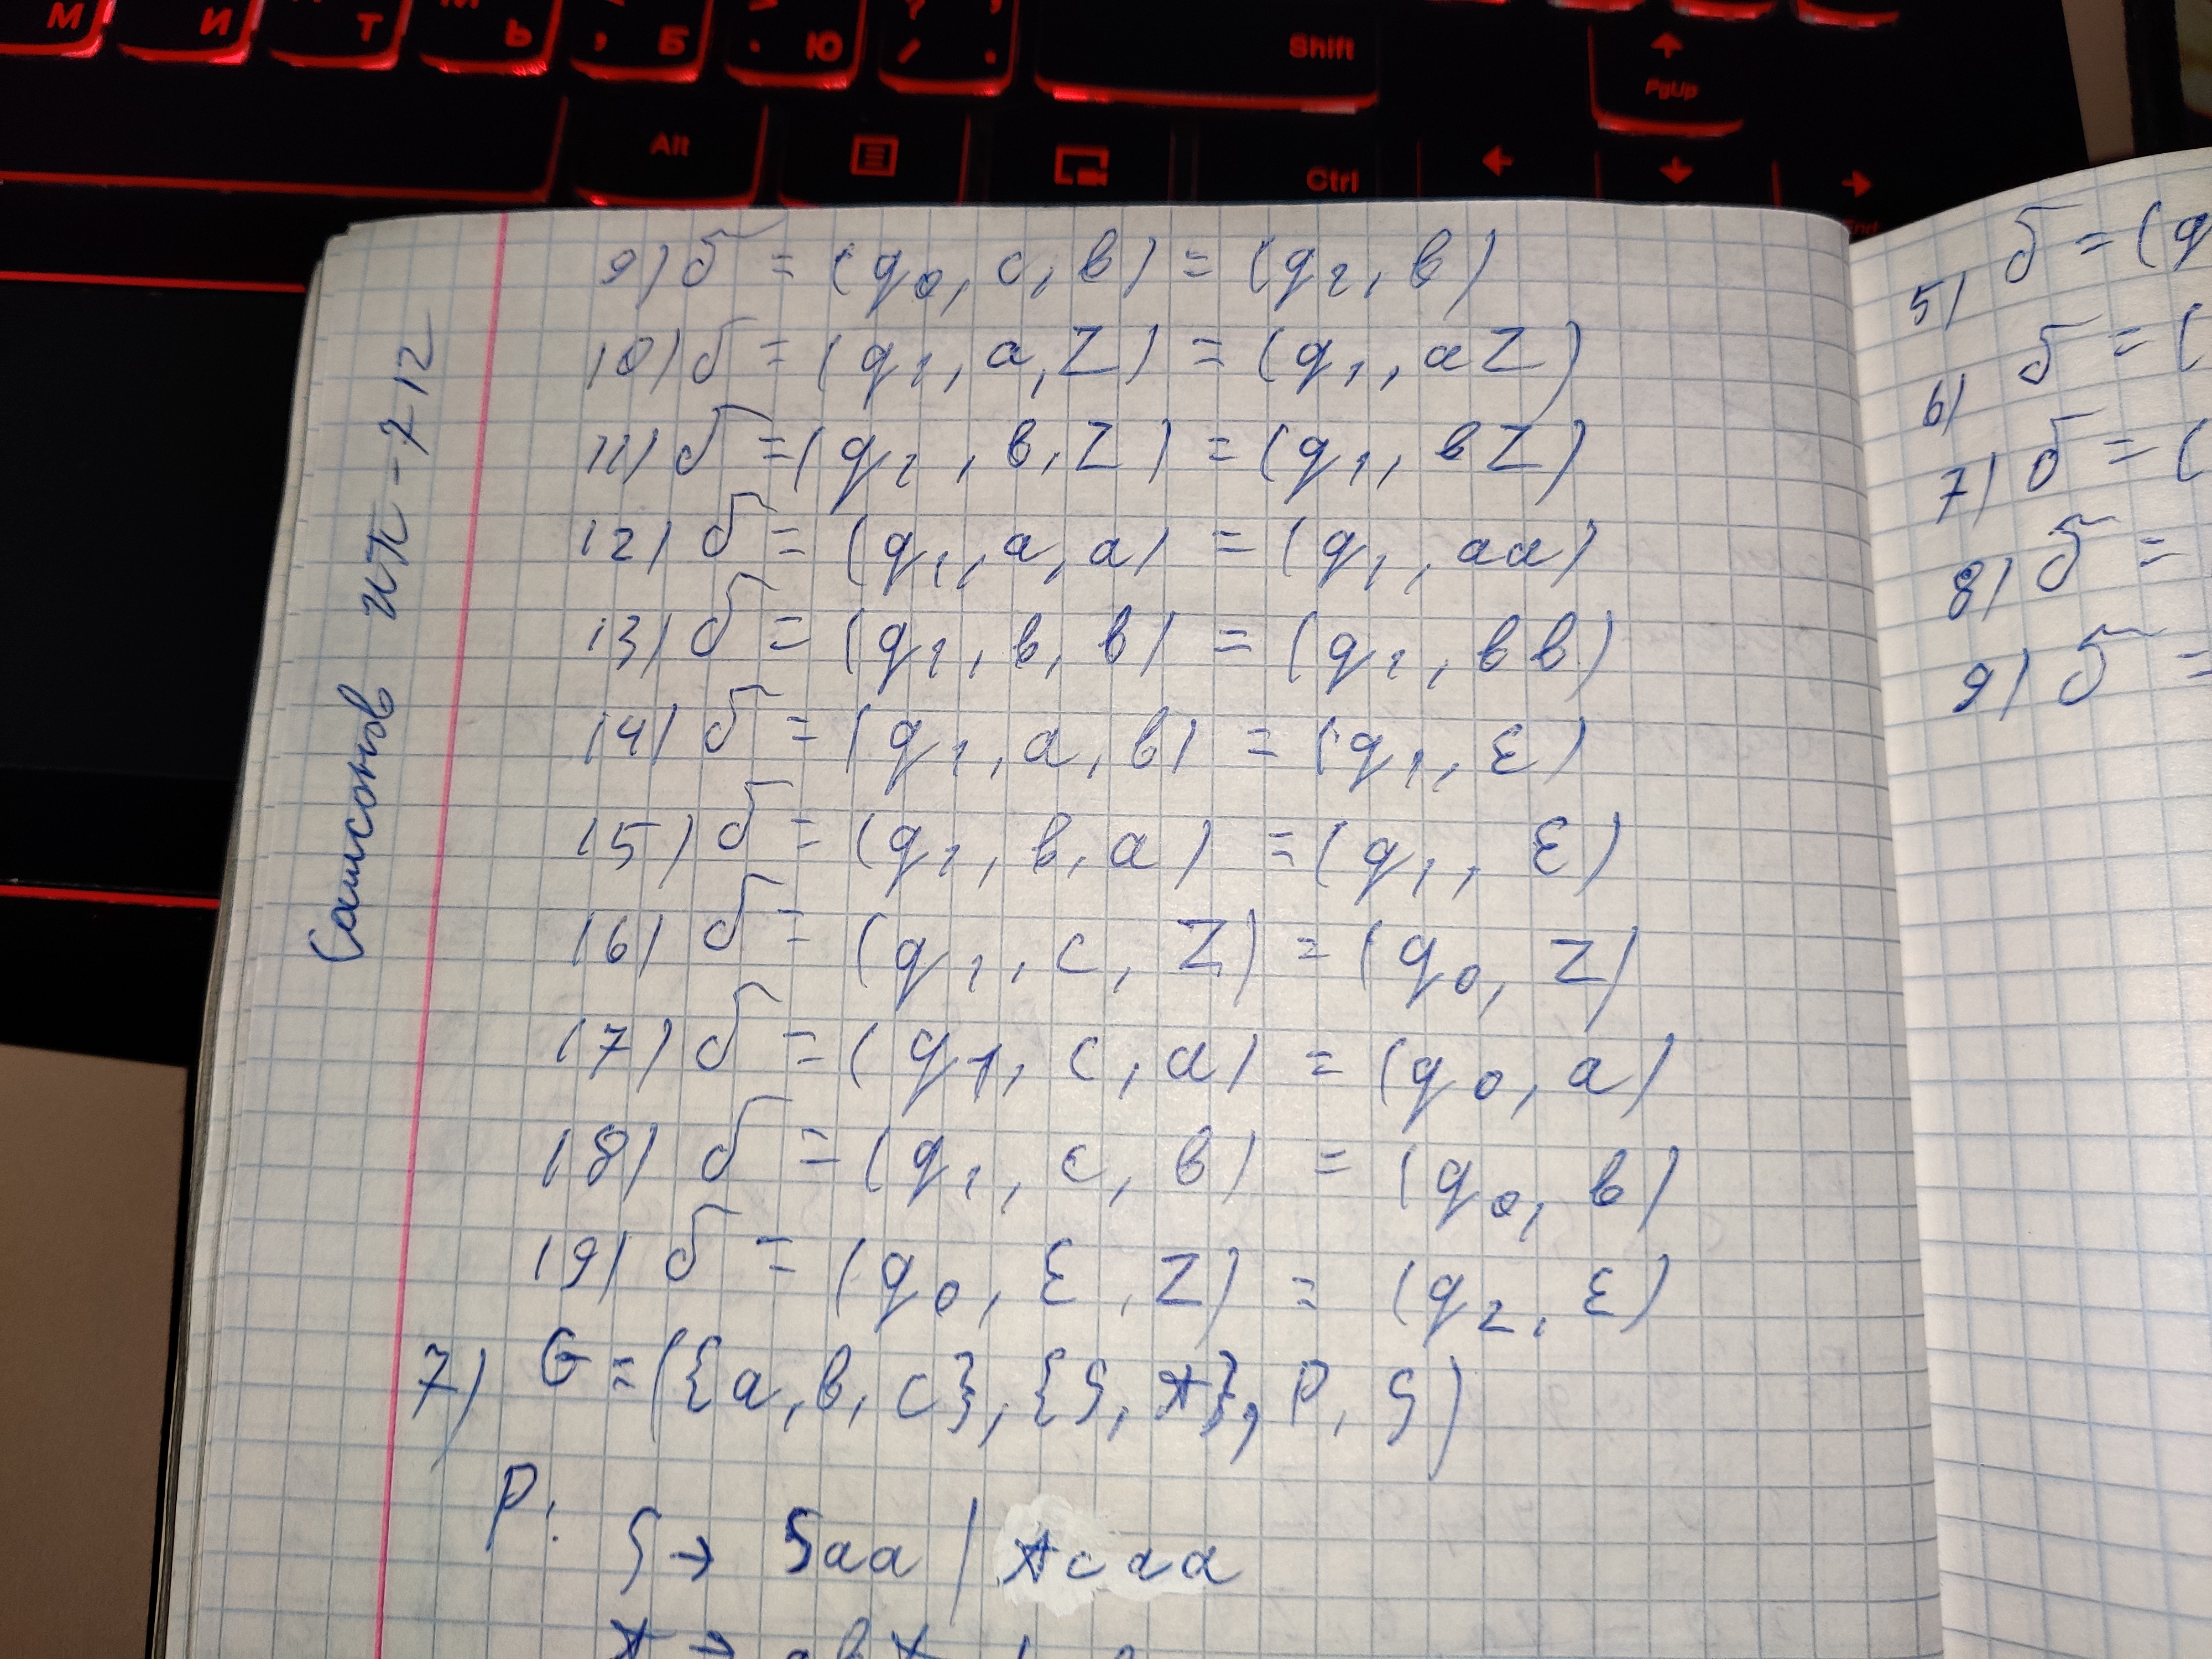 М И Т Ь , Б . Ю / . Shift
PgUp
Alt Ctrl End
Самсонов ИП-712
9) δ = (q0, c, в) = (q1, в)
10) δ = (q1, a, Z) = (q1, aZ)
11) δ = (q1, в, Z) = (q1, вZ)
12) δ = (q1, a, a) = (q1, aa)
13) δ = (q1, в, в) = (q1, вв)
14) δ = (q1, a, в) = (q1, ε)
15) δ = (q1, в, a) = (q1, ε)
16) δ = (q1, c, Z) = (q0, Z)
17) δ = (q1, c, a) = (q0, a)
18) δ = (q1, c, в) = (q0, в)
19) δ = (q0, ε, Z) = (q2, ε)
7) G = ({a, в, c}, {S, A}, P, S)
P:
S → Saa | Acaa
A → aвA |
5) δ = (q
6) δ = (
7) δ = (
8) δ =
9) δ =